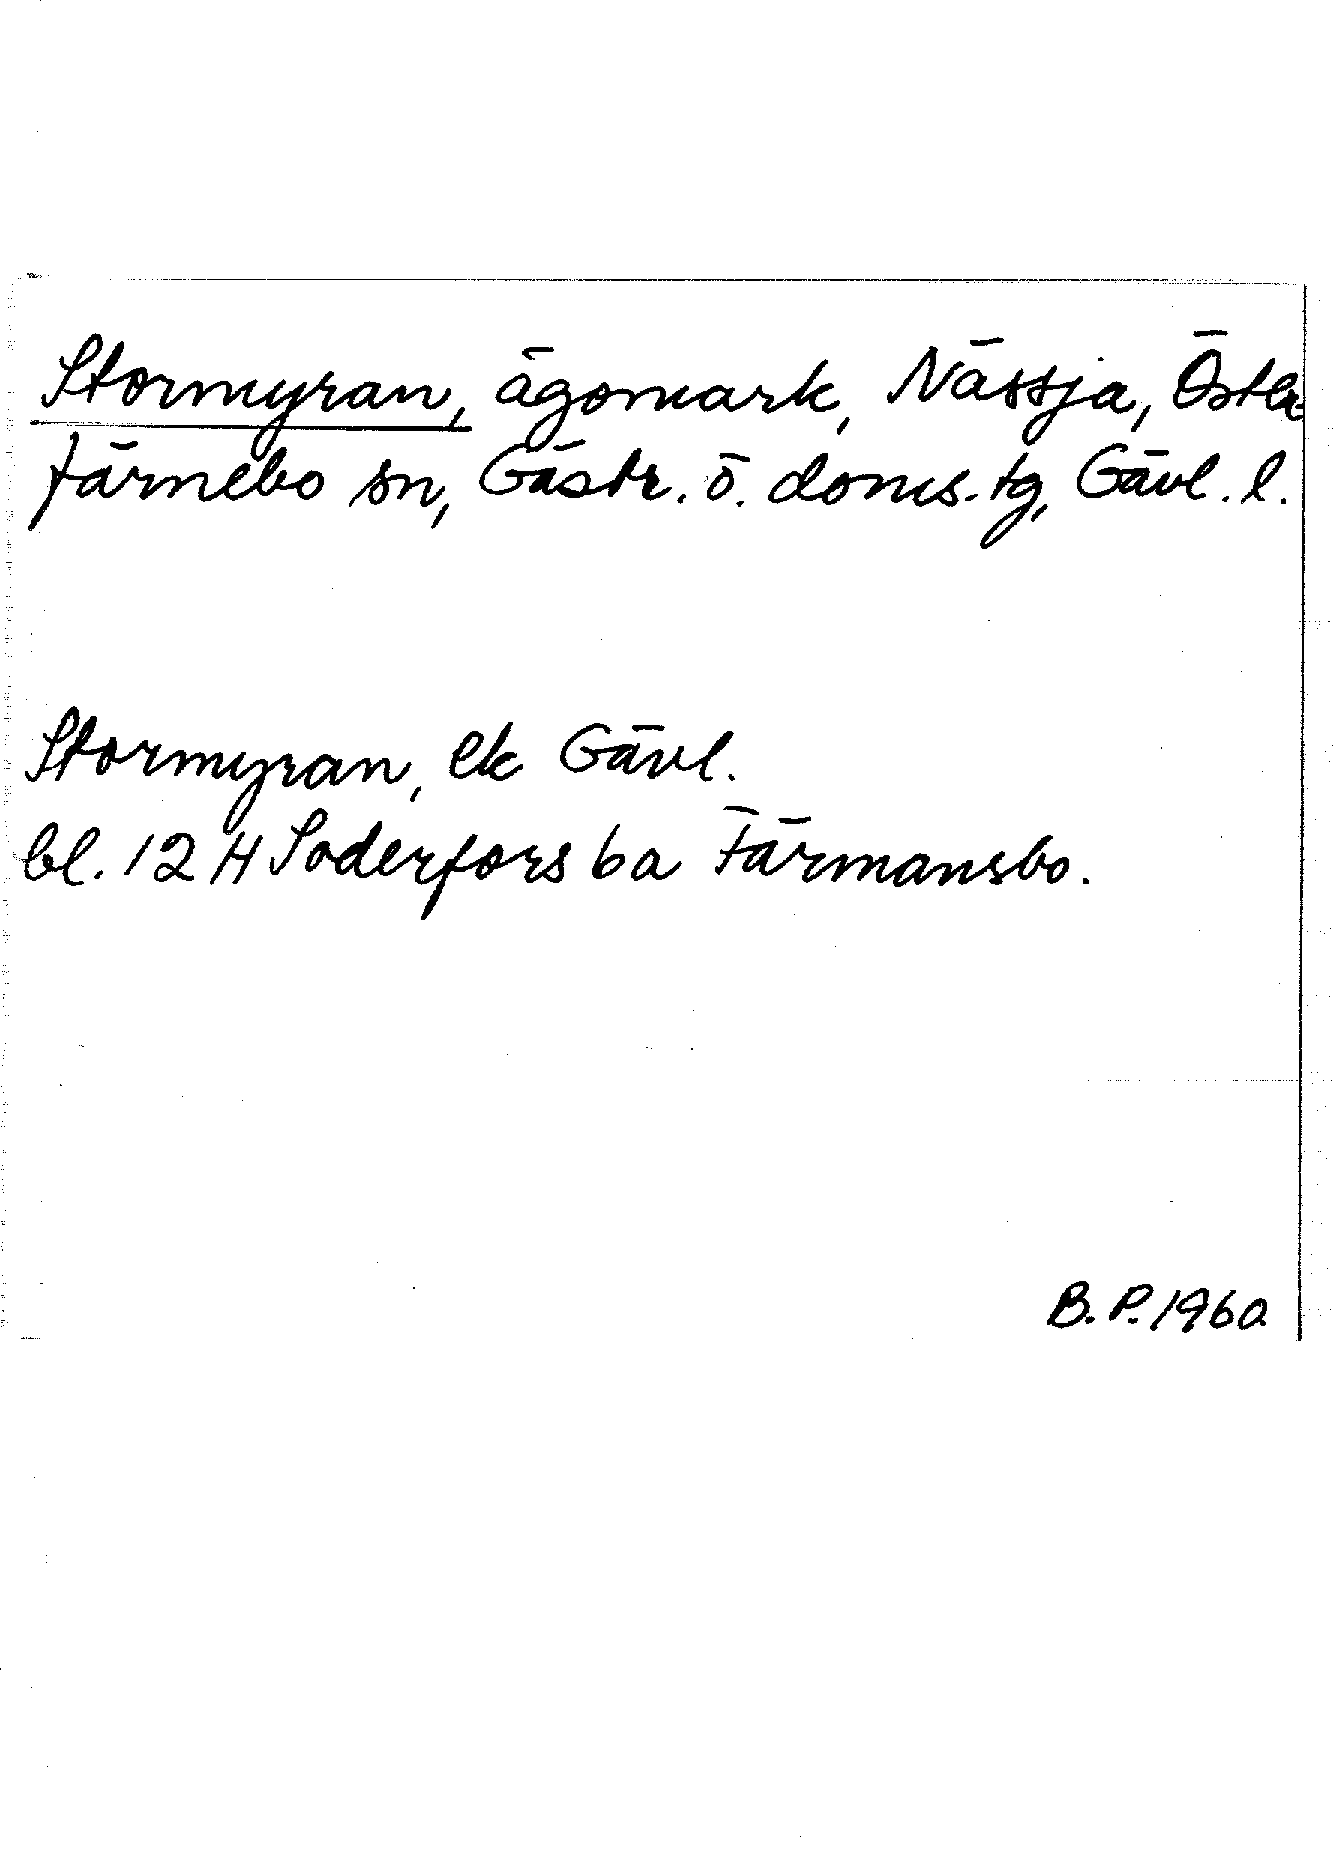 Stormyran, ägomark, Nässja, Öster
färnebo sn, Gästr. ö. doms. tg, Gävl. l.
Stormyran, ek Gävl.
bl. 12 H Söderfors 6a Färmansbo.
B. P. 1960